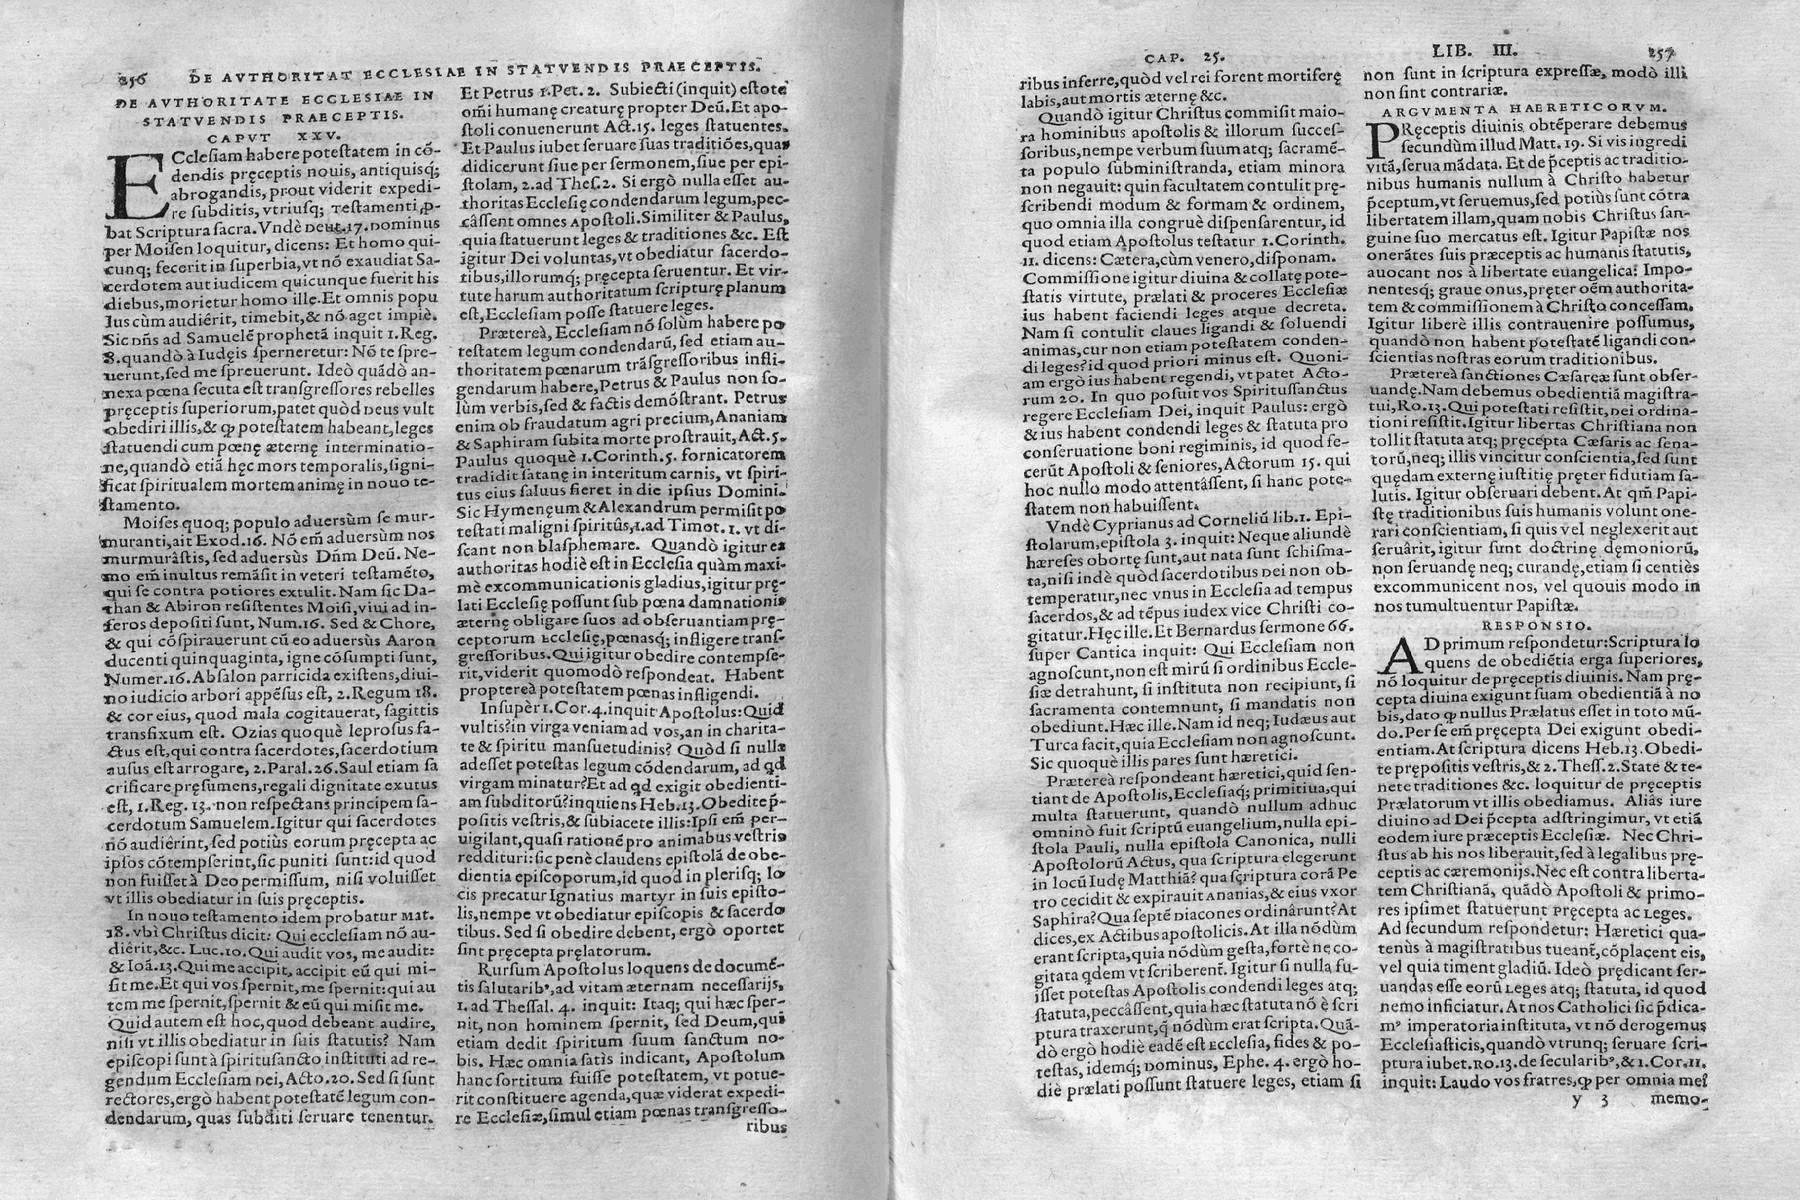 256 DE AVTHORITAT ECCLESIAE IN STATVENDIS PRAECEPTIS.
DE AVTHORITATE ECCLESIAE IN
STATVENDIS PRAECEPTIS.
CAPVT XXV.
ECclesiam habere potestatem in cō-
dendis pręceptis nouis, antiquisq;
abrogandis, prout viderit expedi-
re subditis, vtriusq; Testamenti ꝓ-
bat Scriptura sacra. Vndè Deut. 17. Dominus
per Moisen loquitur, dicens: Et homo qui-
cunq; fecerit in superbia, vt nō exaudiat Sa-
cerdotem aut iudicem quicunque fuerit his
diebus, morietur homo ille. Et omnis popu
lus cùm audiêrit, timebit, & nō aget impiè.
Sic Dn̄s ad Samuelē prophetā inquit 1. Reg.
8. quandò à Iudęis sperneretur: Nō te spre-
uerunt, sed me spreuerunt. Ideò quādò an-
nexa pœna secuta est transgressores rebelles
pręceptis superiorum, patet quòd Deus vult
obediri illis, & ꝙ potestatem habeant, leges
statuendi cum pœnę æternę interminatio-
ne, quandò etiā hęc mors temporalis, signi-
ficat spiritualem mortem animę in nouo te-
stamento.
Moises quoq; populo aduersùm se mur-
muranti, ait Exod. 16. Nō em̄ aduersùm nos
murmurâstis, sed aduersùs Dn̄m Deū. Ne-
mo em̄ inultus remāsit in veteri testamēto,
qui se contra potiores extulit. Nam sic Da-
than & Abiron resistentes Moisi, viui ad in-
feros depositi sunt, Num. 16. Sed & Chore,
& qui cōspirauerunt cū eo aduersùs Aaron
ducenti quinquaginta, igne cōsumpti sunt,
Numer. 16. Absalon parricida existens, diui-
no iudicio arbori appēsus est, 2. Regum 18.
& cor eius, quod mala cogitauerat, sagittis
transfixum est. Ozias quoquè leprosus fa-
ctus est, qui contra sacerdotes, sacerdotium
ausus est arrogare, 2. Paral. 26. Saul etiam sa
crificare pręsumens, regali dignitate exutus
est, 1. Reg. 13. non respectans principem sa-
cerdotum Samuelem. Igitur qui sacerdotes
nō audiêrint, sed potiùs eorum pręcepta ac
ipsos cōtempserint, sic puniti sunt: id quod
non fuisset à Deo permissum, nisi voluisset
vt illis obediatur in suis pręceptis.
In nouo testamento idem probatur Mat.
18. vbi Christus dicit: Qui ecclesiam nō au-
diêrit, &c. Luc. 10. Qui audit vos, me audit:
& Ioā. 13. Qui me accipit, accipit eū qui mi-
sit me. Et qui vos spernit, me spernit: qui au
tem me spernit, spernit & eū qui misit me.
Quid autem est hoc, quod debeant audire,
nisi vt illis obediatur in suis statutis? Nam
episcopi sunt à spiritusancto instituti ad re-
gendum Ecclesiam Dei, Acto. 20. Sed si sunt
rectores, ergò habent potestatē legum con-
dendarum, quas subditi seruare tenentur.
Et Petrus 1. Pet. 2. Subiecti (inquit) estote
om̄i humanę creaturę propter Deū. Et apo-
stoli conuenerunt Act. 15. leges statuentes.
Et Paulus iubet seruare suas traditiōes, quas
didicerunt siue per sermonem, siue per epi-
stolam, 2. ad Thes. 2. Si ergò nulla esset au-
thoritas Ecclesię condendarum legum, pec-
câssent omnes Apostoli. Similiter & Paulus,
quia statuerunt leges & traditiones &c. Est
igitur Dei voluntas, vt obediatur sacerdo-
tibus, illorumq; pręcepta seruentur. Et vir-
tute harum authoritatum scripturę planum
est, Ecclesiam posse statuere leges.
Prætereà, Ecclesiam nō solùm habere po
testatem legum condendarū, sed etiam au-
thoritatem pœnarum trāsgressoribus infli-
gendarum habere, Petrus & Paulus non so-
lùm verbis, sed & factis demōstrant. Petrus
enim ob fraudatum agri precium, Ananiam
& Saphiram subita morte prostrauit, Act. 5.
Paulus quoquè 1. Corinth. 5. fornicatorem
tradidit satanę in interitum carnis, vt spiri-
tus eius saluus fieret in die ipsius Domini.
Sic Hymenęum & Alexandrum permisit po
testati maligni spiritûs, 1. ad Timot. 1. vt di-
scant non blasphemare. Quandò igitur ea
authoritas hodiè est in Ecclesia quàm maxi-
mè excommunicationis gladius, igitur prę-
lati Ecclesię possunt sub pœna damnationis
æternę obligare suos ad obseruantiam prę-
ceptorum Ecclesię, pœnasq; infligere trans-
gressoribus. Qui igitur obedire contempse-
rit, viderit quomodò respondeat. Habent
proptereà potestatem pœnas infligendi.
Insupèr 1. Cor. 4. inquit Apostolus: Quid
vultis? in virga veniam ad vos, an in charita-
te & spiritu mansuetudinis? Quòd si nulla
adesset potestas legum cōdendarum, ad qd
virgam minatur? Et ad qd exigit obedienti-
am subditorū? inquiens Heb. 13. Obedite p̄-
positis vestris, & subiacete illis: Ipsi em̄ per-
uigilant, quasi rationē pro animabus vestris
reddituri: sic penè claudens epistolā de obe-
dientia episcoporum, id quod in plerisq; lo
cis precatur Ignatius martyr in suis episto-
lis, nempe vt obediatur episcopis & sacerdo
tibus. Sed si obedire debent, ergò oportet
sint pręcepta pręlatorum.
Rursum Apostolus loquens de documē-
tis salutaribꝰ, ad vitam æternam necessarijs,
1. ad Thessal. 4. inquit: Itaq; qui hæc sper-
nit, non hominem spernit, sed Deum, qui
etiam dedit spiritum suum sanctum no-
bis. Hæc omnia satìs indicant, Apostolum
hanc sortitum fuisse potestatem, vt potue-
rit constituere agenda, quæ viderat expedi-
re Ecclesiæ, simul etiam pœnas transgresso-
ribus
CAP. 25.
ribus inferre, quòd vel rei forent mortiferę
labis, aut mortis æternę &c.
Quandò igitur Christus commisit maio-
ra hominibus apostolis & illorum succes-
soribus, nempe verbum suum atq; sacramē-
ta populo subministranda, etiam minora
non negauit: quin facultatem contulit prę-
scribendi modum & formam & ordinem,
quo omnia illa congruè dispensarentur, id
quod etiam Apostolus testatur 1. Corinth.
11. dicens: Cætera, cùm venero, disponam.
Commissione igitur diuina & collatę pote-
statis virtute, prælati & proceres Ecclesiæ
ius habent faciendi leges atque decreta.
Nam si contulit claues ligandi & soluendi
animas, cur non etiam potestatem conden-
di leges? id quod priori minus est. Quoni-
am ergò ius habent regendi, vt patet Acto-
rum 20. In quo posuit vos Spiritussanctus
regere Ecclesiam Dei, inquit Paulus: ergò
& ius habent condendi leges & statuta pro
conseruatione boni regiminis, id quod fe-
cerūt Apostoli & seniores, Actorum 15. qui
hoc nullo modo attentâssent, si hanc pote-
statem non habuissent.
Vndè Cyprianus ad Corneliū lib. 1. Epi-
stolarum, epistola 3. inquit: Neque aliundè
hæreses obortę sunt, aut nata sunt schisma-
ta, nisi indè quòd sacerdotibus Dei non ob-
temperatur, nec vnus in Ecclesia ad tempus
sacerdos, & ad tēpus iudex vice Christi co-
gitatur. Hęc ille. Et Bernardus sermone 66.
super Cantica inquit: Qui Ecclesiam non
agnoscunt, non est mirū si ordinibus Eccle-
siæ detrahunt, si instituta non recipiunt, si
sacramenta contemnunt, si mandatis non
obediunt. Hæc ille. Nam id neq; Iudæus aut
Turca facit, quia Ecclesiam non agnoscunt.
Sic quoquè illis pares sunt hæretici.
Prætereà respondeant hæretici, quid sen-
tiant de Apostolis, Ecclesiaq; primitiua, qui
multa statuerunt, quandò nullum adhuc
omninò fuit scriptū euangelium, nulla epi-
stola Pauli, nulla epistola Canonica, nulli
Apostolorū Actus, qua scriptura elegerunt
in locū Iudę Matthiā? qua scriptura corā Pe
tro cecidit & expirauit Ananias, & eius vxor
Saphira? Qua septē Diacones ordinârunt? At
dices, ex Actibus apostolicis. At illa nōdùm
erant scripta, quia nōdùm gesta, fortè ne co-
gitata qdem vt scriberent̄. Igitur si nulla fu-
isset potestas Apostolis condendi leges atq;
statuta, peccâssent, quia hæc statuta nō è scri
ptura traxerunt, q̄ nōdùm erat scripta. Quā-
dò ergò hodiè eadē est Ecclesia, fides & po-
testas, idemq; Dominus, Ephe. 4. ergò ho-
diè prælati possunt statuere leges, etiam si
LIB. III. 257
non sunt in scriptura expressæ, modò illi
non sint contrariæ.
ARGVMENTA HAERETICORVM.
PRęceptis diuinis obtēperare debemus
secundùm illud Matt. 19. Si vis ingredi
vitā, serua mādata. Et de p̄ceptis ac traditio-
nibus humanis nullum à Christo habetur
p̄ceptum, vt seruemus, sed potiùs sunt cōtra
libertatem illam, quam nobis Christus san-
guine suo mercatus est. Igitur Papistæ nos
onerātes suis præceptis ac humanis statutis,
auocant nos à libertate euangelica: Impo-
nentesq; graue onus, pręter oēm authorita-
tem & commissionem à Christo concessam.
Igitur liberè illis contrauenire possumus,
quandò non habent potestatē ligandi con-
scientias nostras eorum traditionibus.
Prætereà sanctiones Cæsareæ sunt obser-
uandę. Nam debemus obedientiā magistra-
tui, Ro. 13. Qui potestati resistit, Dei ordina-
tioni resistit. Igitur libertas Christiana non
tollit statuta atq; pręcepta Cæsaris ac sena-
torū, neq; illis vincitur conscientia, sed sunt
quędam externę iustitię pręter fidutiam sa-
lutis. Igitur obseruari debent. At qm̄ Papi-
stę traditionibus suis humanis volunt one-
rari conscientiam, si quis vel neglexerit aut
seruârit, igitur sunt doctrinę dęmoniorū,
non seruandę neq; curandę, etiam si centiès
excommunicent nos, vel quouis modo in
nos tumultuentur Papistæ.
RESPONSIO.
AD primum respondetur: Scriptura lo
quens de obediētia erga superiores,
nō loquitur de pręceptis diuinis. Nam prę-
cepta diuina exigunt suam obedientiā à no
bis, dato ꝙ nullus Prælatus esset in toto Mū-
do. Per se em̄ pręcepta Dei exigunt obedi-
entiam. At scriptura dicens Heb. 13. Obedi-
te prępositis vestris, & 2. Thess. 2. State & te-
nete traditiones &c. loquitur de pręceptis
Prælatorum vt illis obediamus. Aliâs iure
diuino ad Dei p̄cepta adstringimur, vt etiā
eodem iure præceptis Ecclesiæ. Nec Chri-
stus ab his nos liberauit, sed à legalibus prę-
ceptis ac cæremonijs. Nec est contra liberta-
tem Christianā, quādò Apostoli & primo-
res ipsimet statuerunt pręcepta ac Leges.
Ad secundum respondetur: Hæretici qua-
tenùs à magistratibus tueant̄, cōplacent eis,
vel quia timent gladiū. Ideò prędicant ser-
uandas esse eorū Leges atq; statuta, id quod
nemo inficiatur. At nos Catholici sic p̄dica-
mꝰ imperatoria instituta, vt nō derogemus
Ecclesiasticis, quandò vtrunq; seruare scri-
ptura iubet. Ro. 13. de secularibꝰ, & 1. Cor. 11.
inquit: Laudo vos fratres, ꝙ per omnia mei
y 3 memo-